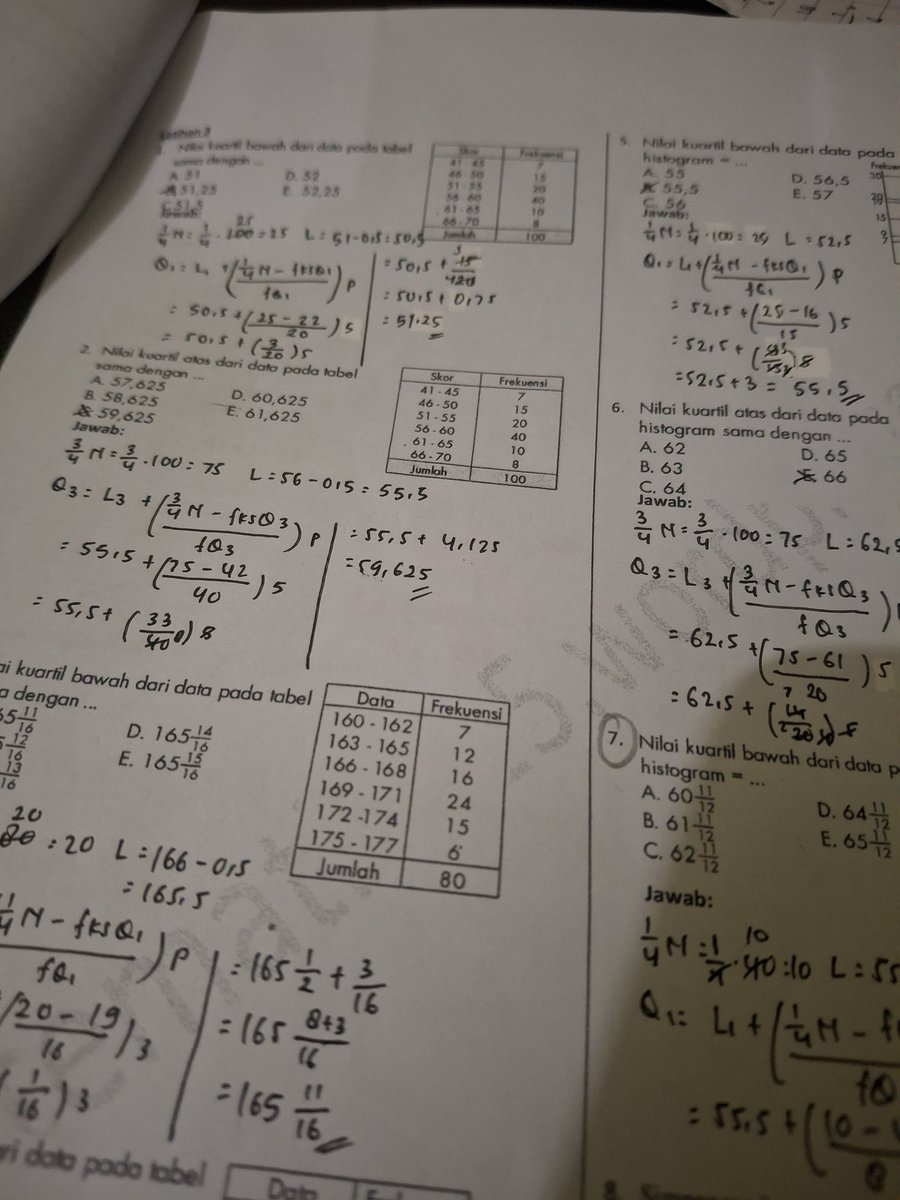 1. Nilai kuartil bawah dari data pada tabel
sama dengan ...
A. 51
D. 52
51,25
E. 52,25
C. 51,5
Jawab:
Skor Frekuensi
41 - 45 7
46 - 50 15
51 - 55 20
56 - 60 40
61 - 65 10
66 - 70 8
Jumlah 100
1/4 N = 1/4 . 100 = 25 L = 51 - 0,5 = 50,5
25
Q1 = L1 + (1/4 N - fksQ1 / fQ1) P
= 50,5 + (25 - 22 / 20) 5
= 50,5 + (3/20) 5
= 50,5 + 15/420
3
= 50,5 + 0,75
= 51,25
2. Nilai kuartil atas dari data pada tabel
sama dengan ...
A. 57,625
D. 60,625
B. 58,625
E. 61,625
59,625
Jawab:
Skor Frekuensi
41 - 45 7
46 - 50 15
51 - 55 20
56 - 60 40
61 - 65 10
66 - 70 8
Jumlah 100
3/4 N = 3/4 . 100 = 75 L = 56 - 0,5 = 55,5
Q3 = L3 + (3/4 N - fksQ3 / fQ3) P
= 55,5 + (75 - 42 / 40) 5
= 55,5 + (33/40 8) 8
= 55,5 + 4,125
= 59,625
ai kuartil bawah dari data pada tabel
a dengan ...
65 11/16
D. 165 14/16
12/16
E. 165 15/16
13/16
Data Frekuensi
160 - 162 7
163 - 165 12
166 - 168 16
169 - 171 24
172 - 174 15
175 - 177 6
Jumlah 80
20
80 : 20 L = 166 - 0,5
= 165,5
1/4 N - fksQ1 / fQ1) P
(20 - 19 / 16) 3
(1/16) 3
= 165 1/2 + 3/16
= 165 8+3/16
= 165 11/16
ari data pada tabel
Data
5. Nilai kuartil bawah dari data pada
histogram = ...
A. 55
D. 56,5
55,5
E. 57
C. 56
Jawab:
30
15
3
1/4 N = 1/4 . 100 = 25 L = 52,5
Q1 = L1 + (1/4 N - fksQ1 / fQ1) P
= 52,5 + (25 - 16 / 15) 5
= 52,5 +
= 52,5 + 3 = 55,5
6. Nilai kuartil atas dari data pada
histogram sama dengan ...
A. 62
D. 65
B. 63
66
C. 64
Jawab:
3/4 N = 3/4 . 100 = 75 L = 62,5
Q3 = L3 + (3/4 N - fksQ3 / fQ3)
= 62,5 + (75 - 61 / 20) 5
= 62,5 +
7. Nilai kuartil bawah dari data p
histogram = ...
A. 60 11/12
D. 64 11/12
B. 61 11/12
E. 65 11/12
C. 62 11/12
Jawab:
10
1/4 N = 1/4 . 40 = 10 L = 55
Q1 = L1 + (1/4 N - f
fQ
= 55,5 + (10 -